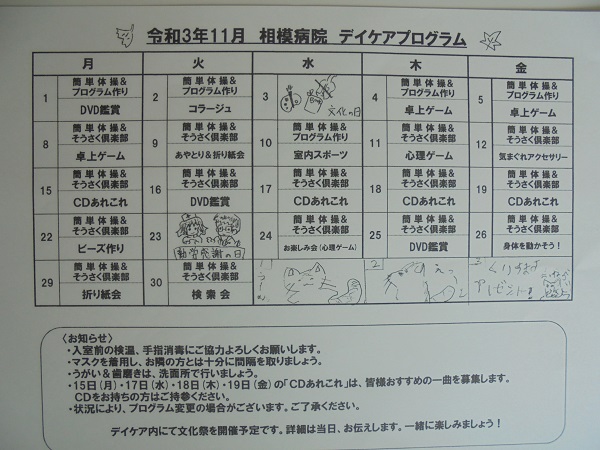 令和3年11月 相模病院 デイケアプログラム
月 火 水 木 金
1 簡単体操&プログラム作り DVD鑑賞
2 簡単体操&プログラム作り コラージュ
3 文化の日
4 簡単体操&プログラム作り 卓上ゲーム
5 簡単体操&プログラム作り 卓上ゲーム
8 簡単体操&そうさく倶楽部 卓上ゲーム
9 簡単体操&そうさく倶楽部 あやとり&折り紙会
10 簡単体操&プログラム作り 室内スポーツ
11 簡単体操&そうさく倶楽部 心理ゲーム
12 簡単体操&そうさく倶楽部 気まぐれアクセサリー
15 簡単体操&そうさく倶楽部 CDあれこれ
16 簡単体操&そうさく倶楽部 DVD鑑賞
17 簡単体操&そうさく倶楽部 CDあれこれ
18 簡単体操&そうさく倶楽部 CDあれこれ
19 簡単体操&そうさく倶楽部 CDあれこれ
22 簡単体操&そうさく倶楽部 ビーズ作り
23 勤労感謝の日
24 簡単体操&そうさく倶楽部 お楽しみ会(心理ゲーム)
25 簡単体操&そうさく倶楽部 DVD鑑賞
26 簡単体操&そうさく倶楽部 身体を動かそう!
29 簡単体操&そうさく倶楽部 折り紙会
30 簡単体操&そうさく倶楽部 検索会
〈お知らせ〉
・入室前の検温、手指消毒にご協力よろしくお願いします。
・マスクを着用し、お隣の方とは十分に間隔を取りましょう。
・うがい&歯磨きは、洗面所で行いましょう。
・15日(月)・17日(水)・18日(木)・19日(金)の「CDあれこれ」は、皆様おすすめの一曲を募集します。
CDをお持ちの方はご持参ください。
・状況により、プログラム変更の場合がございます。ご了承ください。
デイケア内にて文化祭を開催予定です。詳細は当日、お伝えします。一緒に楽しみましょう!